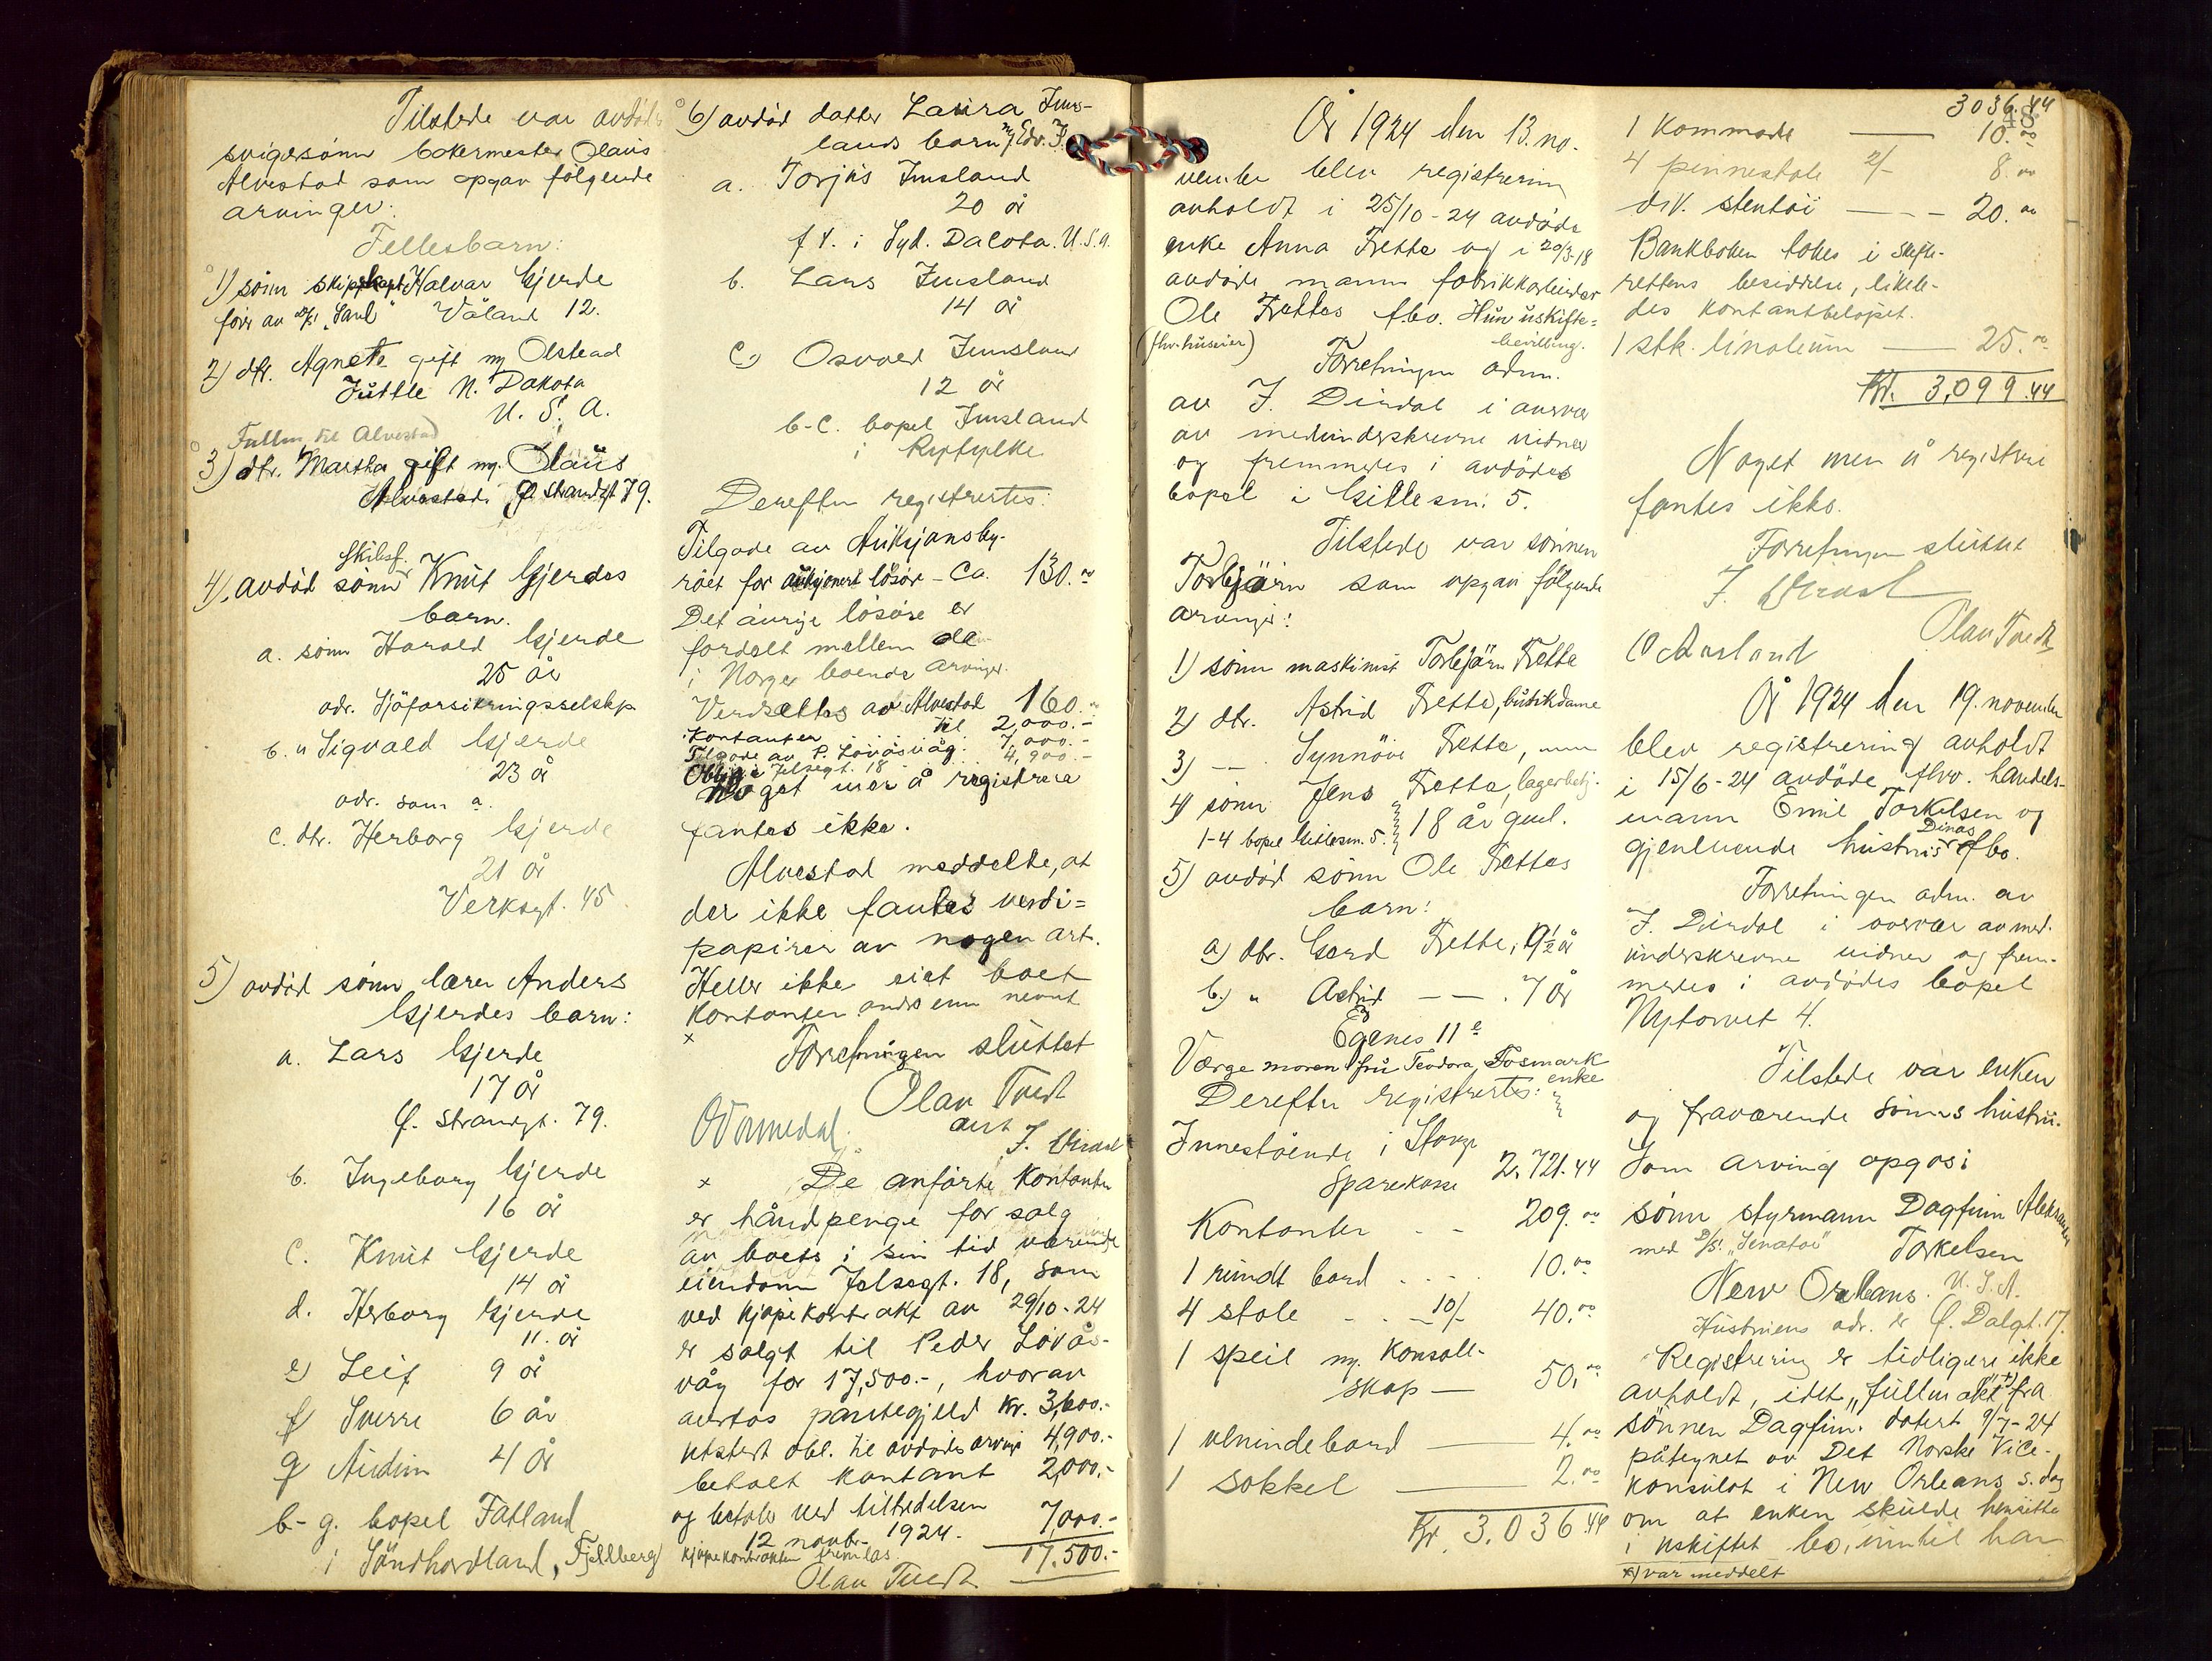 Tilstede var avdødes
svigersønn bakermester Olaus
Alvestad som opgav følgende
arvinger:
Fellesbarn:
1) sønn skipskapt Halvar Gjerde
fører av D/S! "Saul" Våland 12.
2) dtr. Agnete gift m/ Olstead
Tuttle N. Dakota
U. S. A.
Fullm. til Alvestad
3) dtr. Martha gift m/ Olaus
Alvestad. Ø. Strandgt 79.
4) avdød skibsf. sønn Knut Gjerdes
barn.
a. sønn Harald Gjerde
25 år
adr. Sjøforsikringsselskp
b. " Sigvald Gjerde
23 år
adr. som a.
c. dtr. Herborg Gjerde
21 år
Verksgt. 45
5) avdød sønn lærer Anders
Gjerdes barn:
a. Lars Gjerde
17 år
Ø. Strandgt. 79.
b. Ingeborg Gjerde
16 år
c. Knut Gjerde
14 år
d. Herborg Gjerde
11. år
e) Leif 9 år
f Sverre 6 år
g Audun 4 år
b-g. bopel Fatland
i Søndhordland, Fjellberg
6) avdød datter Laura Ims-
lands barn m/ Edv. I.
a. Torjus Imsland
20 år
f. t. i Syd. Dacota. U.S.A.
b. Lars Imsland
14 år
c.) Osvald Imsland
12 år
b-c. bopel Imsland
i Ryfylke
Derefter registrertes:
Tilgode av Auksjonsby-
rået for auksjonert løsøre - Ca. 130.00
Det øvrige løsøre er
fordelt mellem de
i Norge boende arvinger.
Verdsettes av Alvestad til 160.-
Kontanter 2,000.-
Tilgode av P. Lovåsvåg: 7,000.-
Oblig. i Jelsegt. 18 4,900.-
Noget mer å registrere
fantes ikke.
Alvestad meddelte, at
der ikke fantes verdi=
papirer av nogen art.
Heller ikke eiet boet
kontanter andre enn nevnt
x Forretningen sluttet
Olav Tvedt
J. Dirdal
x De anførte kontanter
er håndpenge for salg
av boets i sin tid værende
eiendom Jelsegt. 18, som
ved kjøpekontrakt av 29/10-24
er solgt til Peder Lovås-
våg for 17,500.-, hvorav
avertas pantegjeld kr. 3,600.-
utstedt obl. til avdødes arvinger 4,900.-
betalt kontant 2,000.-
og betales ved tiltredelsen
12 novbr. 1924. 7,000.-
kjøpekontrakten fremlas. 17,500.-
Olav Tvedt
År 1924 den 13. no-
vember blev registrering
avholdt i 25/10-24 avdøde
enke Anna Trette og i 20/3-18
avdøde mann fabrikkarbeider
Ole Trettes f.bo. Hun uskifte=
(fhv. huseier) bevilling.
Forretningen adm.
av J. Dirdal i overvær
av medunderskrevne vidner
og fremmedes i avdødes
bopel i Gillesm. 5.
Tilstede var sønnen
Torbjørn som opgav følgende
arvinger:
1) sønn maskinist Torbjørn Trette
2) dtr. Astrid Trette, butikdame
3) — . Synnøve Trette,
4) sønn Jens Trette, lagerbetj.
1-4 bopel Gillesm. 5. 18 år gml.
5) avdød sønn Ole Trettes
barn:
a) dtr. Gerd Trette, 9½ år
b.) " Astrid — — . 7 år
Egenes 11 e
Værge moren fru Teodora Fosmark
enke
Derefter registrertes:
Innestående i Stavgr
Sparekasse 2.721.44
Kontanter - - 209.00
1 rundt bord . . . . 10.00
4 stole . . - 10/- 40.00
1 speil m/ konsoll-
skap — 50.00
1 vevindebord — 4.00
1 sokkel — 2.00
Kr. 3.036.44
3036.44
48
1 kommode — 10.00
4 pinnestole 2/- 8.00
div. stentøi — - - 20.00
Bankboken tokes i skifte-
rettens besiddelse, likele-
des kontantbeløpet.
1 stk. linoleum — 25.00
Kr. 3,099.44
Noget mer å registrere
fantes ikke.
Forretningen sluttet
J. Dirdal
Olav Tvedt
O Aarland
År 1924 den 19. november
blev registrering avholdt
i 15/6-24 avdøde, fhv. handels-
mann Emil Torkelsen og
gjenlevende hustru Dinas f.bo.
Forretningen adm. av
J. Dirdal i overvær av med-
underskrevne vidner og frem-
medes i avdødes bopel
Nytorvet 4.
Tilstede var enken
og fraværende sønns hustru.
Som arving opgas:
sønn styrmann Dagfinn Aleksander
med D/S! "Senator" Torkelsen
New Orleans. U. S. A.
Hustruens adr. er Ø. Dalgt. 17.
Registrering er tidligere ikke
avholdt, idet "fullmakt" x) fra
sønnen Dagfinn. datert 9/7-24
påtegnet av Det Norske Vice-
konsulat i New Orleans s. dag
om at enken skulde hensitte
i uskiftet bo, inntil han
x) var meddelt